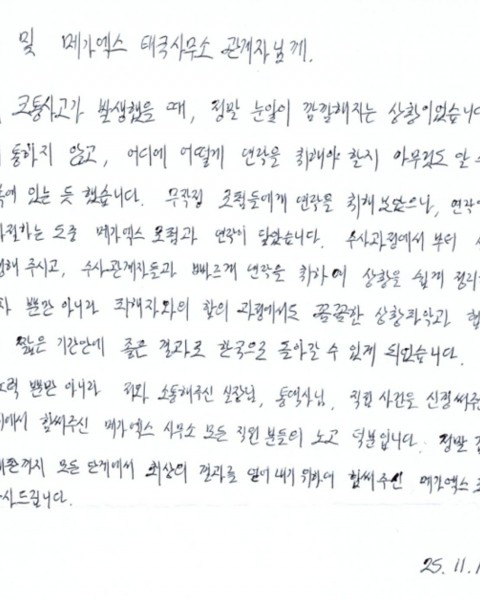 및 메가엑스 태국사무소 관계자님께.
교통사고가 발생했을 때, 정말 눈앞이 깜깜해지는 상황이었습니다
통하지 않고, 어디에 어떻게 연락을 취해야 할지 아무것도 알 수
있는 듯 했습니다. 무작정 로펌들에게 연락을 취해 보았으나, 연락이
하는 도중 메가엑스 로펌과 연락이 닿았습니다. 수사과정에서 부터
해 주시고, 수사관계자들과 빠르게 연락을 취하여 상황을 쉽게 정리
뿐만 아니라 피해자와의 합의 과정에서도 꼼꼼한 상황파악과 협
짧은 기간만에 좋은 결과로 한국으로 돌아갈 수 있게 되었습니다.
노력 뿐만 아니라 저와 소통해주신 실장님, 통역사님, 직접 사건을 신경써주
에서 힘써주신 메가엑스 사무소 모든 직원 분들의 노고 덕분입니다. 정말
까지 모든 단계에서 최상의 결과로 얻어 내기 위하여 힘써주신 메가엑스 로
사드립니다.
25. 11. 1